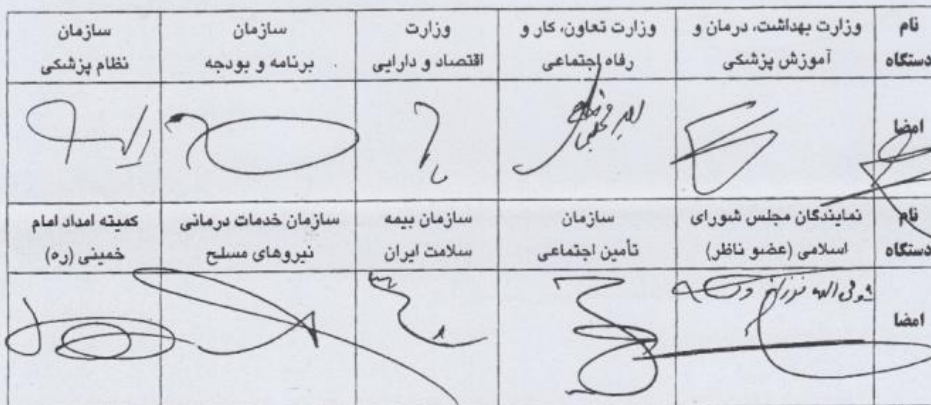 نام دستگاه	وزارت بهداشت، درمان و آموزش پزشکی	وزارت تعاون، کار و رفاه اجتماعی	وزارت اقتصاد و دارایی	سازمان برنامه و بودجه	سازمان نظام پزشکی
امضا
نام دستگاه	نمایندگان مجلس شورای اسلامی (عضو ناظر)	سازمان تأمین اجتماعی	سازمان بیمه سلامت ایران	سازمان خدمات درمانی نیروهای مسلح	کمیته امداد امام خمینی (ره)
امضا